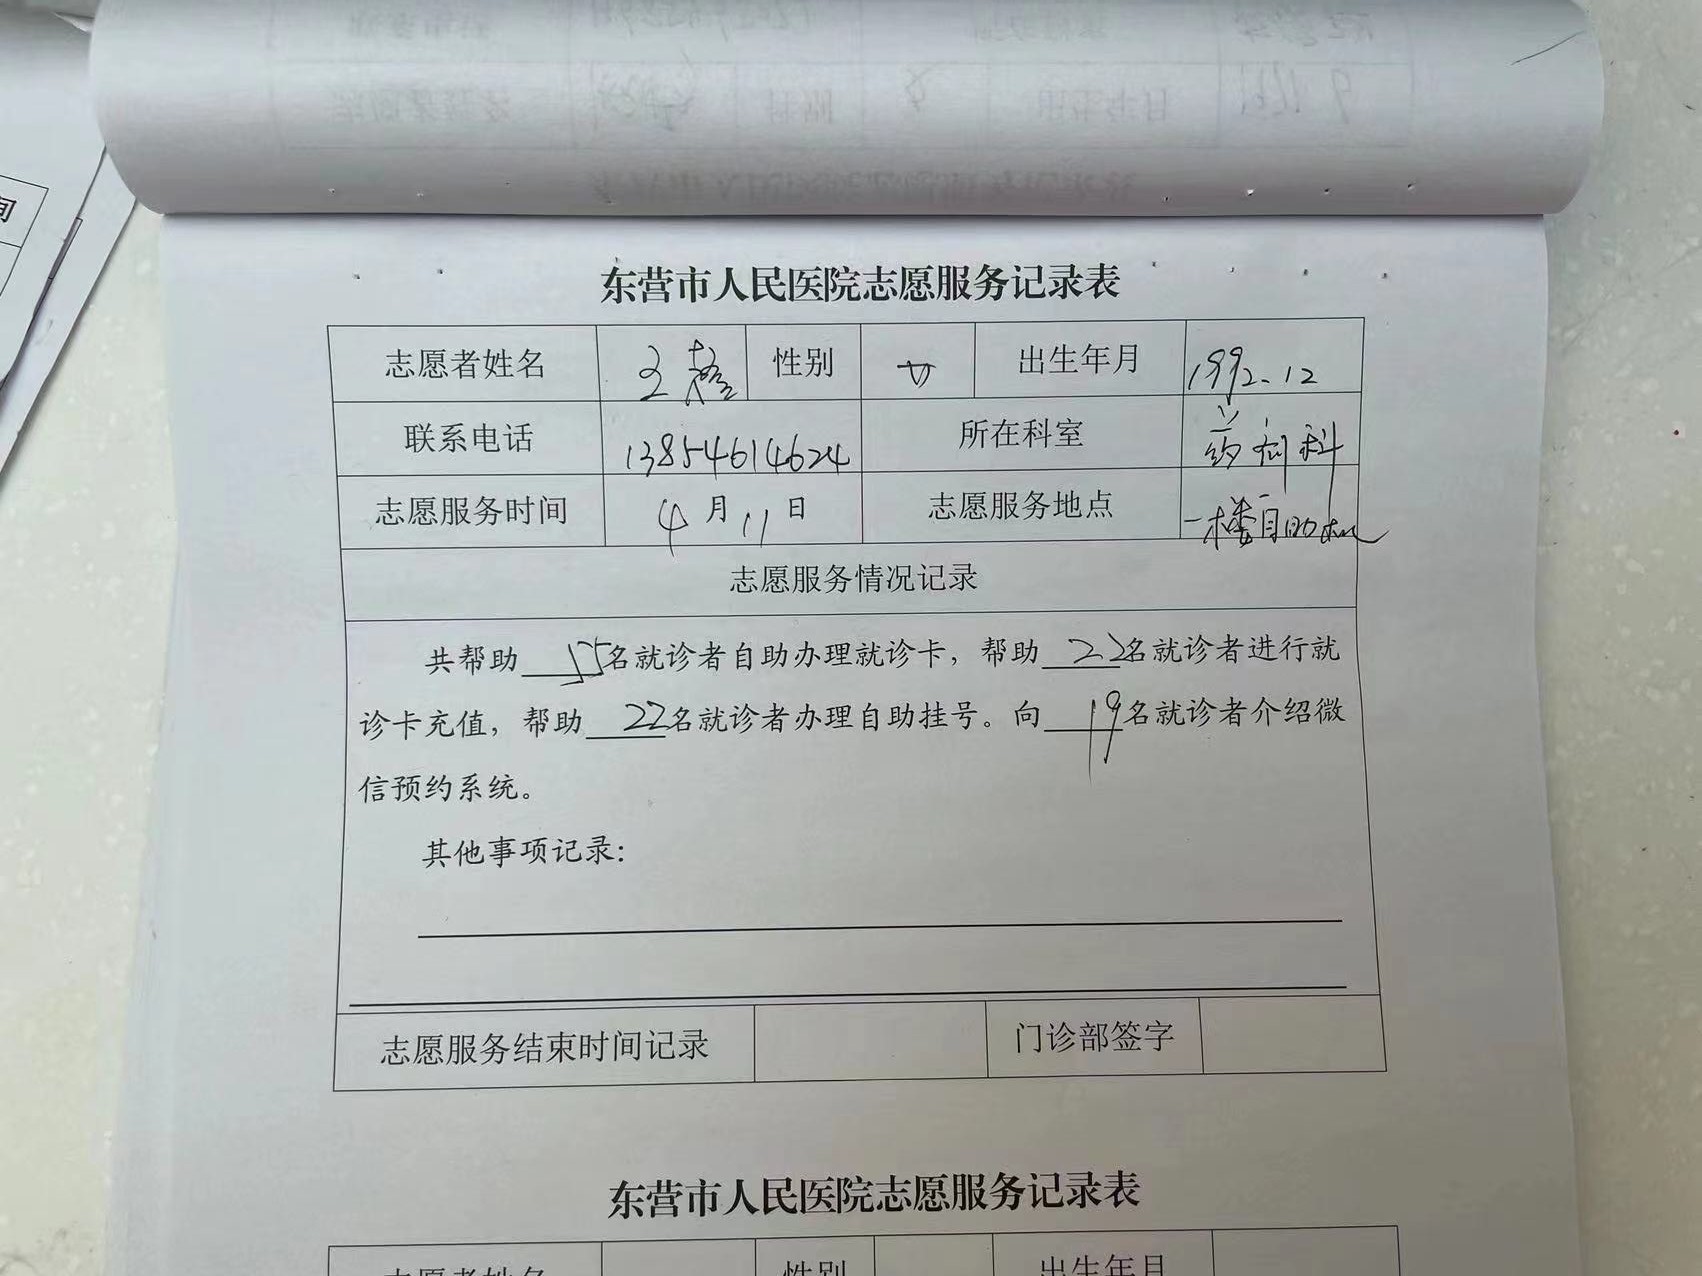 东营市人民医院志愿服务记录表
志愿者姓名 王 性别 女 出生年月 1992.12
联系电话 13854614624 所在科室 药剂科
志愿服务时间 4月11日 志愿服务地点 一楼自助机
志愿服务情况记录
共帮助 15名就诊者自助办理就诊卡，帮助 22名就诊者进行就
诊卡充值，帮助 22名就诊者办理自助挂号。向 19名就诊者介绍微
信预约系统。
其他事项记录：
志愿服务结束时间记录 门诊部签字
东营市人民医院志愿服务记录表
志愿者姓名 性别 出生年月